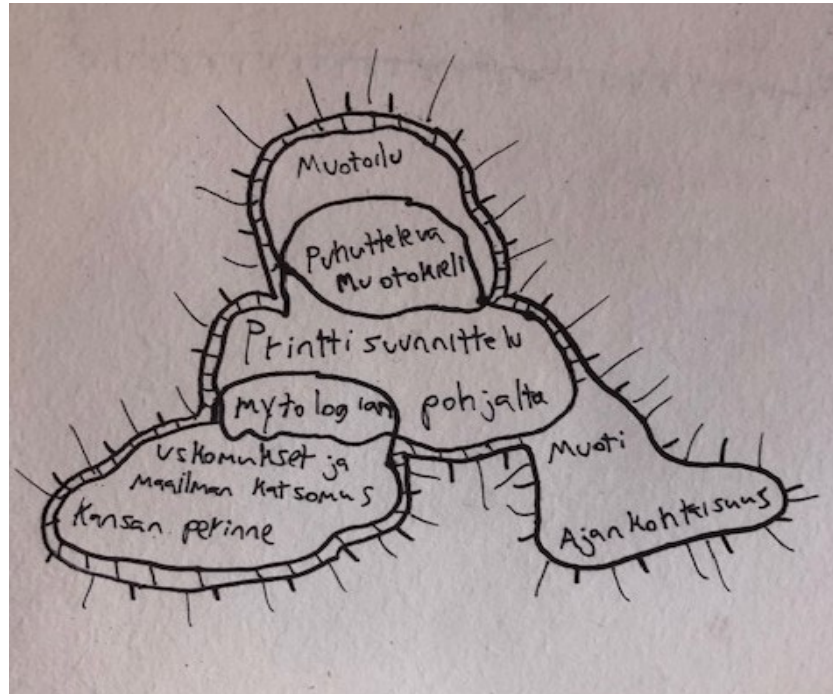 Muotoilu
Puhutteleva
Muotokieli
Printti suunnittelu
mytologian pohjalta
uskomukset ja
maailman katsomus
Kansan perinne
Muoti
Ajankohtaisuus